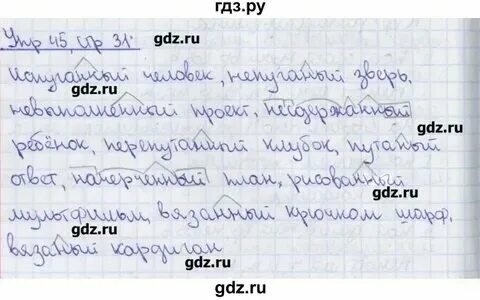 гдз.ру
Упр 45, стр 31.
Испуганный человек, непуганый зверь,
невыполненный проект, несдержанный
ребёнок, перепутанный клубок, путаный
ответ, начерченный план, рисованный
мультфильм, вязанный крючком шарф,
вязаный кардиган
gdz.ru
gdz.ru
gdz.ru
gdz.ru
gdz.ru
gdz.ru
gdz.ru